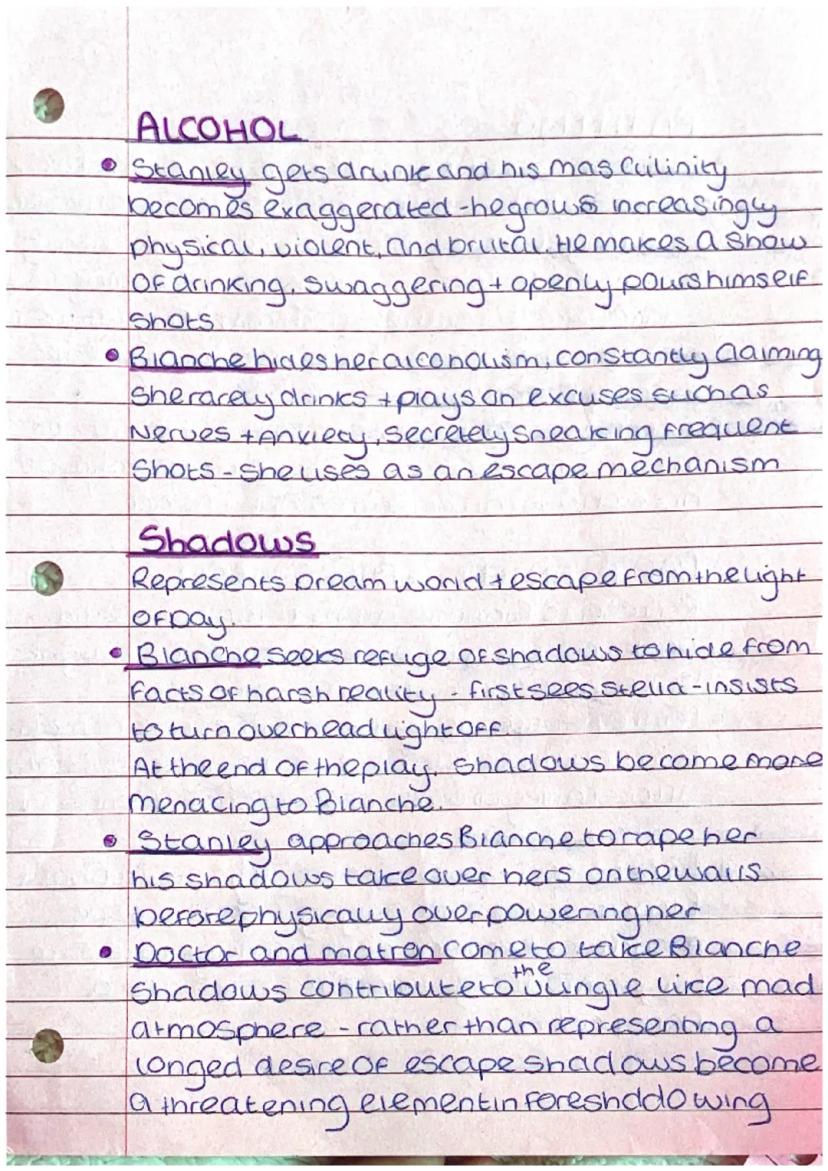 ALCOHOL
• Stanley gets drunk and his masculinity
becomes exaggerated - he grows increasingly
physical, violent, and brutal. He makes a show
of drinking, swaggering + openly pours himself
shots
• Blanche hides her alcoholism, constantly claiming
she rarely drinks + plays on excuses such as
Nerves + Anxiety. Secretely sneaking frequent
shots - she uses as an escape mechanism
Shadows
Represents Dream world + escape from the light
of Day.
• Blanche seeks refuge of shadows to hide from
facts of harsh reality - first sees Stella - insists
to turn overhead light off
At the end of the play, shadows become more
menacing to Blanche.
• Stanley approaches Blanche to rape her
his shadows take over hers on the walls
before physically overpowering her
• Doctor and matron come to take Blanche
shadows contribute to the jungle like mad
atmosphere - rather than representing a
longed desire of escape shadows become
a threatening element in foreshddowing